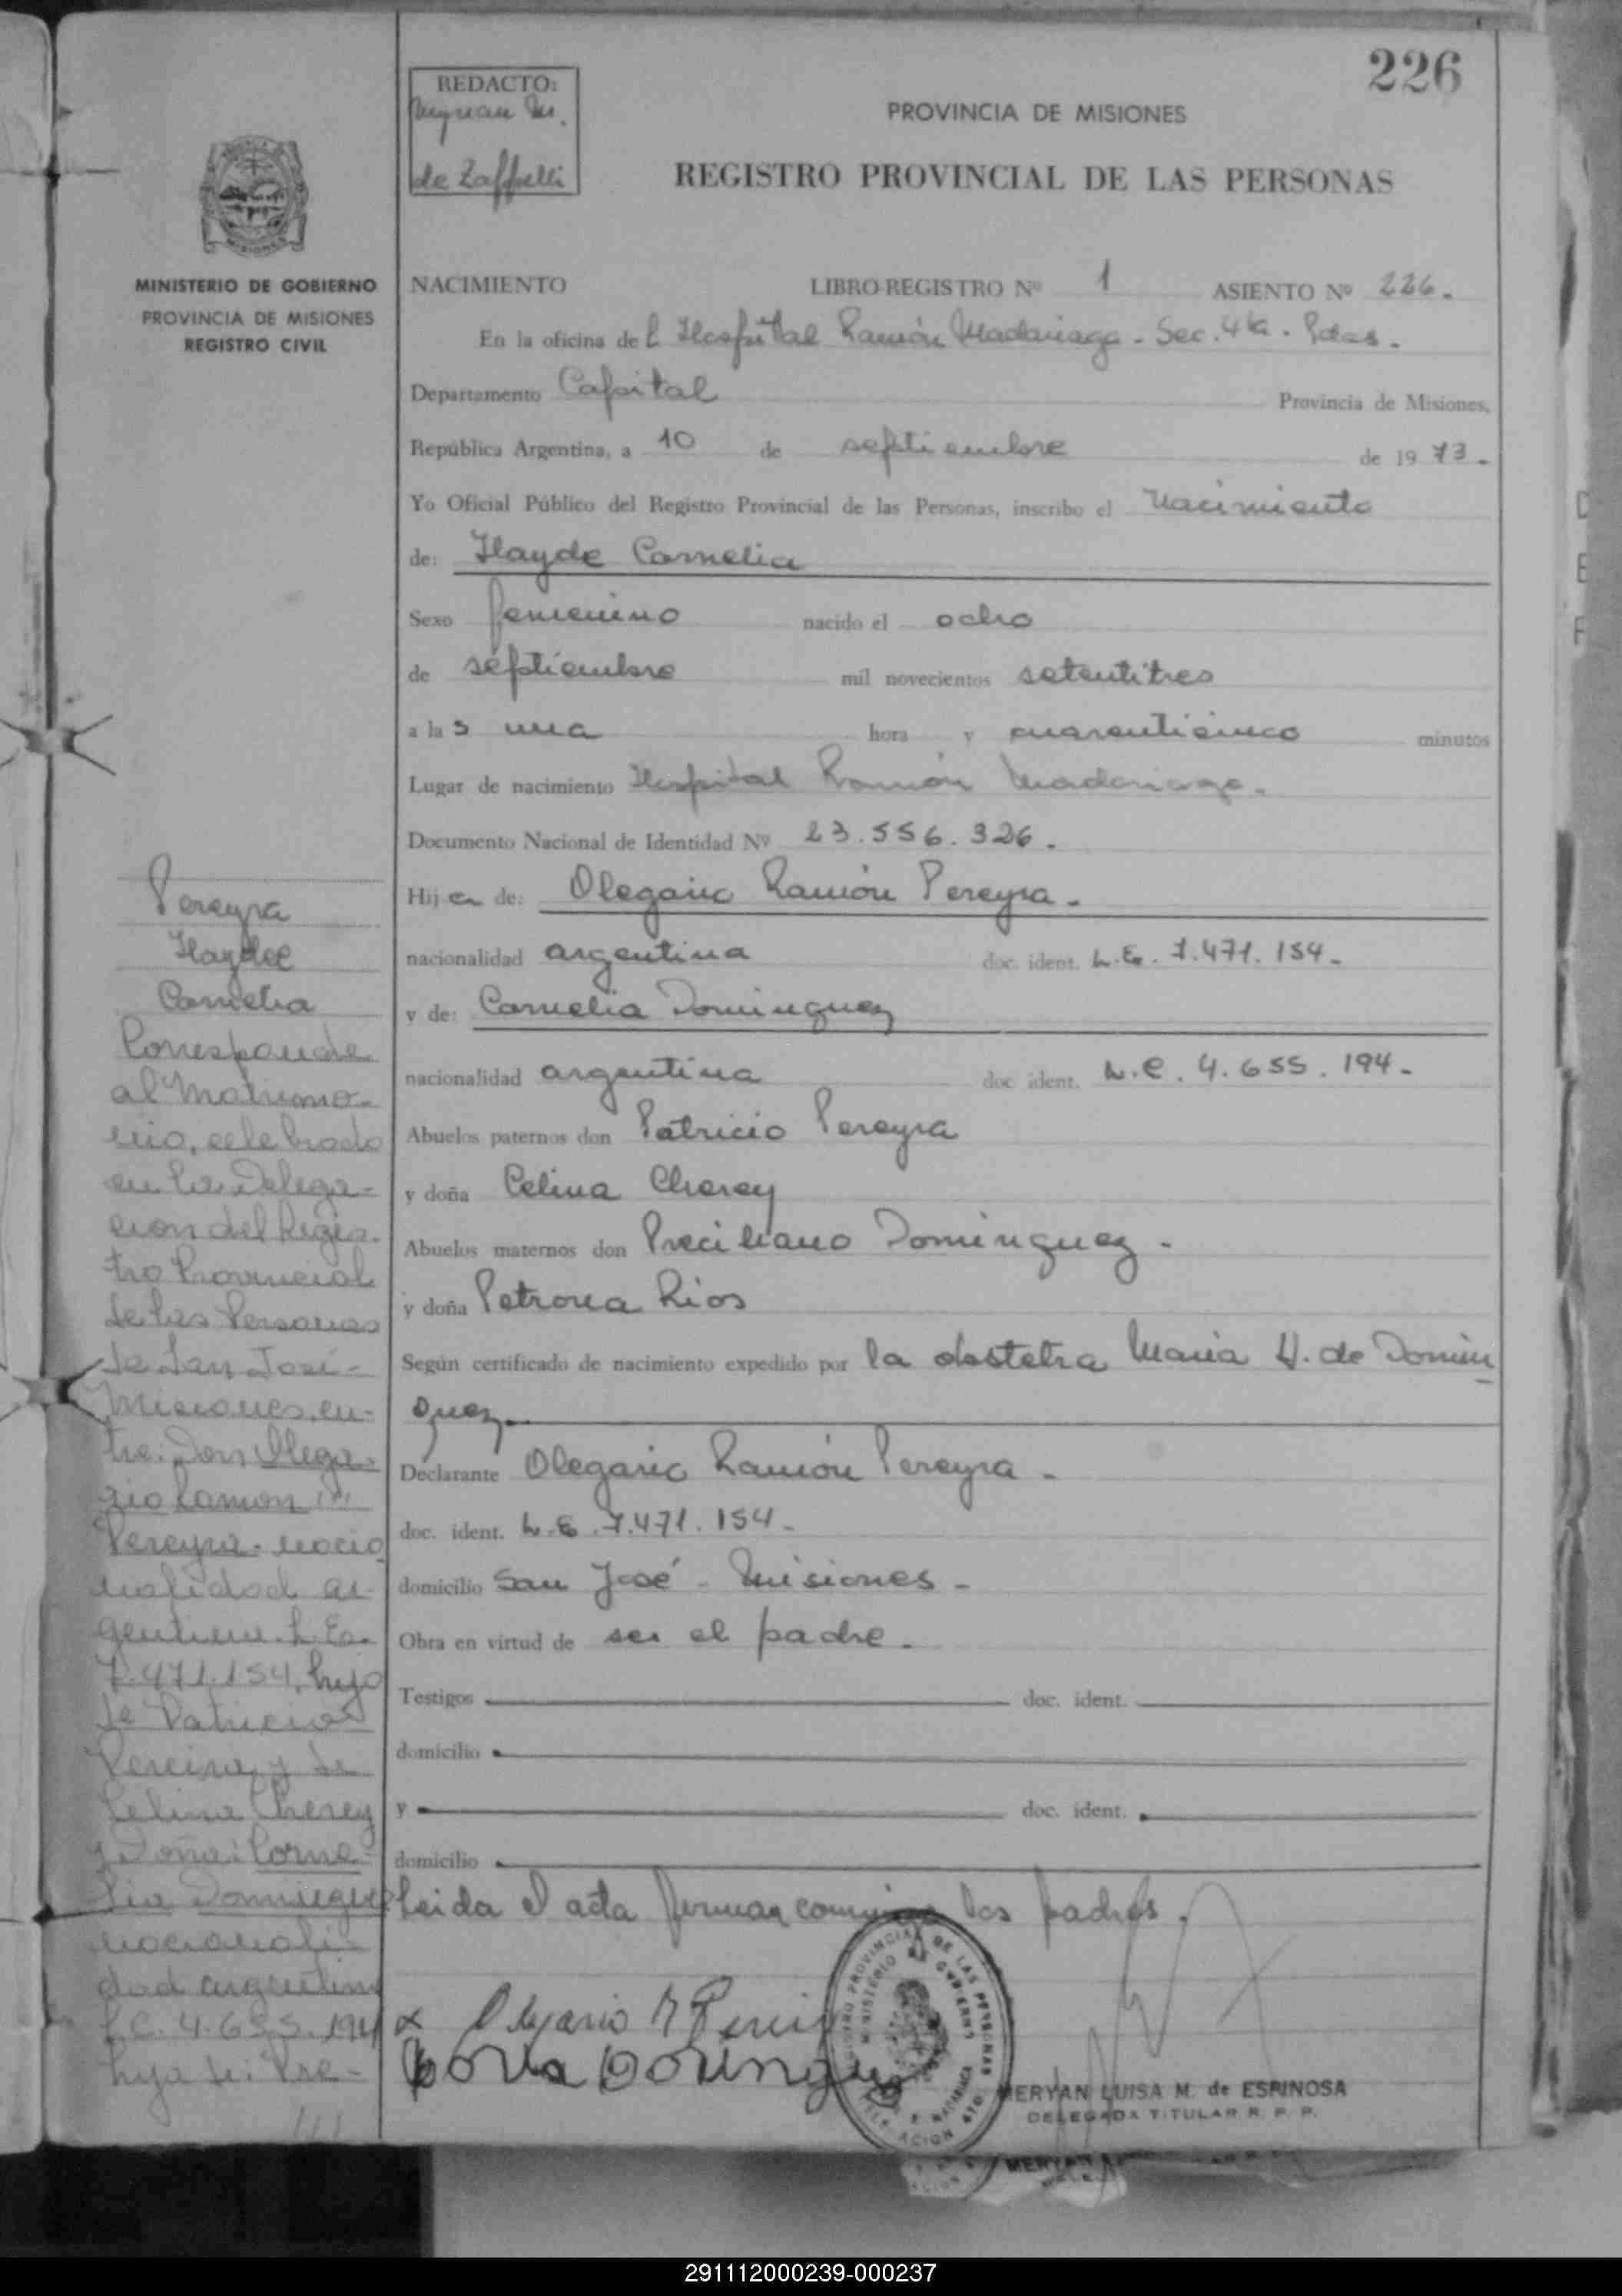 226
REDACTO:
Meryan M.
de Zaffelli
PROVINCIA DE MISIONES
REGISTRO PROVINCIAL DE LAS PERSONAS
MISIONES
MINISTERIO DE GOBIERNO
PROVINCIA DE MISIONES
REGISTRO CIVIL
NACIMIENTO LIBRO-REGISTRO Nº 1 ASIENTO Nº 226.
En la oficina del Hospital Ramón Madariaga - Sec. 4ta. Pdas.
Departamento Capital Provincia de Misiones,
República Argentina, a 10 de septiembre de 1973.
Yo Oficial Público del Registro Provincial de las Personas, inscribo el Nacimiento
de: Hayde Cornelia
Sexo femenino nacido el ocho
de septiembre mil novecientos setentitres
a las una hora y cuarenticinco minutos
Lugar de nacimiento Hospital Ramón Madariaga.
Documento Nacional de Identidad Nº 23.556.326.
Hija de: Olegario Ramón Pereyra.
nacionalidad argentina doc. ident. L.E. 7.471.154-
y de: Cornelia Dominguez
nacionalidad argentina doc ident. L.C. 4.655.194-
Abuelos paternos don Patricio Pereyra
y doña Celina Cherey
Abuelos maternos don Preciliano Dominguez-
y doña Petrona Rios
Según certificado de nacimiento expedido por la obstetra Maria H. de Domin
guez.
Declarante Olegario Ramón Pereyra-
doc. ident. L.E. 7.471.154-
domicilio San José - Misiones-
Obra en virtud de ser el padre.
Testigos doc. ident.
domicilio
y doc. ident.
domicilio
Leida el acta firman conmigo los padres.
Pereyra
Haydee
Cornelia
Corresponde
al matrimo-
nio, celebrado
en la Delega-
cion del Regis-
tro Provincial
de las Personas
de San José-
Misiones, en-
tre: Don Olega-
rio Ramon
Pereyra- nacio
nalidad ar-
gentina. L.E.
7.471.154, hijo
de Patricio
Pereira y de
Celina Cherey
y Doña: Corne-
lia Dominguez
nacionali-
dad argentina
L.C. 4.655.194
hija de: Pre-
x Olegario R Perei
Dominguez
MINISTERIO DE GOBIERNO
MERYAN LUISA M. de ESPINOSA
DELEGADA TITULAR R. P. P.
MERYAN
291112000239-000237